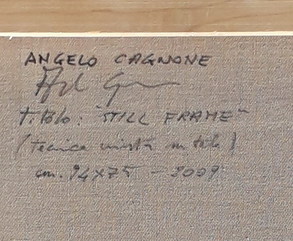 ANGELO CAGNONE
titolo: "STILL FRAME"
(tecnica mista su tela)
cm. 94x75 - 2009